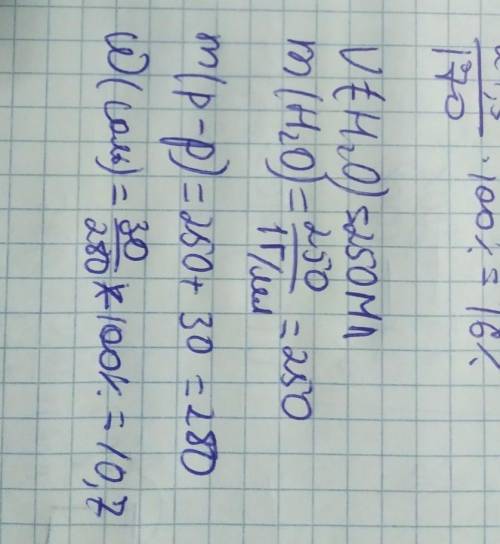 /170 · 100% = 16%
V(H₂O) = 250мл
m(H₂O) = 250/1г/мл = 250
m(р-р) = 250 + 30 = 280
ω(соль) = 30/280 * 100% = 10,7